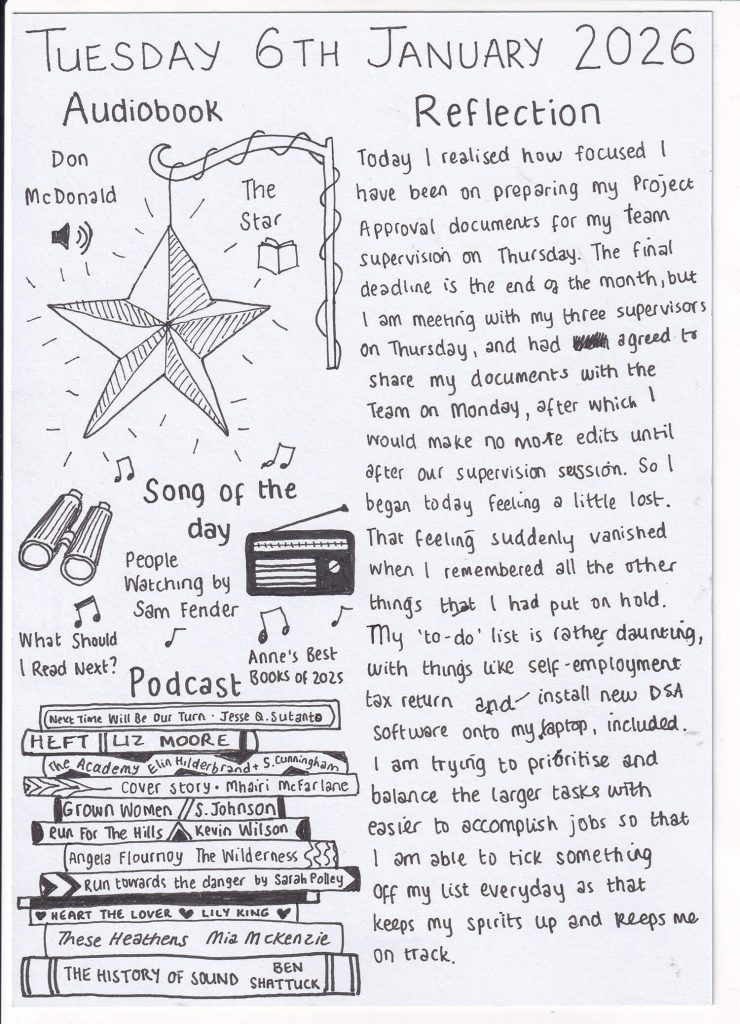 TUESDAY 6TH JANUARY 2026
Audiobook
Don
McDonald
The
Star
Song of the
day
People
Watching by
Sam Fender
What Should
I Read Next?
Anne's Best
Books of 2025
Podcast
Next Time Will Be Our Turn · Jesse Q. Sutanto
HEFT LIZ MOORE
The Academy Elin Hilderbrand + S. Cunningham
Cover story · Mhairi McFarlane
Grown Women S. Johnson
Run For The Hills Kevin Wilson
Angela Flournoy The Wilderness
Run towards the danger by Sarah Polley
HEART THE LOVER LILY KING
These Heathens Mia McKenzie
THE HISTORY OF SOUND BEN
SHATTUCK
Reflection
Today I realised how focused I
have been on preparing my Project
Approval documents for my Team
supervision on Thursday. The final
deadline is the end of the month, but
I am meeting with my three supervisors
on Thursday, and had agreed to
share my documents with the
Team on Monday, after which I
would make no more edits until
after our supervision session. So I
began today feeling a little lost.
That feeling suddenly vanished
when I remembered all the other
things that I had put on hold.
My 'to-do' list is rather daunting,
with things like self-employment
tax return and install new DSA
software onto my laptop, included.
I am trying to prioritise and
balance the larger tasks with
easier to accomplish jobs so that
I am able to tick something
off my list everyday as that
keeps my spirits up and keeps me
on track.